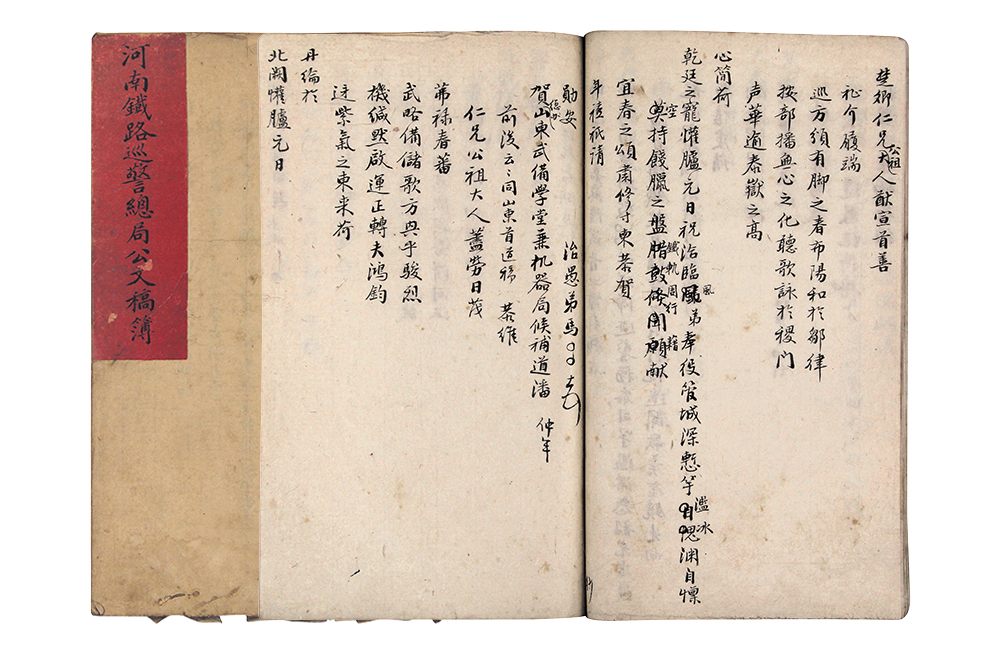 河南鐵路巡警總局公文稿簿
楚卿仁兄公祖大人猷宣首善
祉介履端
巡方須有脚之春布陽和於鄒律
按部播無心之化聽歌詠於稷門
声華過泰嶽之高
心簡荷
乾廷之寵懽臚元日祝洽臨風弟奉役管城深慙竽濫自愧淵冰自懍
鐵軌周行
莫持餞臘之盤腊鼓催願献
宜春之頌肅修寸柬恭賀
年禧祗請
勛安
治愚弟馬
賀山東武備學堂兼机器局候補道潘
仲年
前後云云同山東首道稿
恭維
仁兄公祖大人藎勞日茂
茀祿春蕃
武略備儲歌方興乎駿烈
機緘默啟運正轉夫鴻鈞
迓紫氣之東来荷
丹綸於
北闕懽臚元日